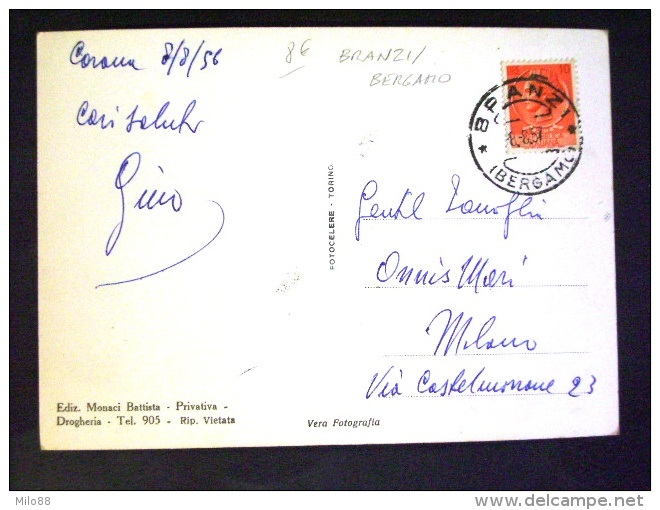 Corona 8/8/56
8€
BRANZI/
BERGAMO
10
BRANZI
(BERGAMO)
Cari saluti
Gino
FOTOCELERE - TORINO
Gentil Famiglia
Onnis Mari
Milano
Via Castelmorrone 23
Ediz. Monaci Battista - Privativa -
Drogheria - Tel. 905 - Rip. Vietata
Vera Fotografia
Milo88
delcampe.net